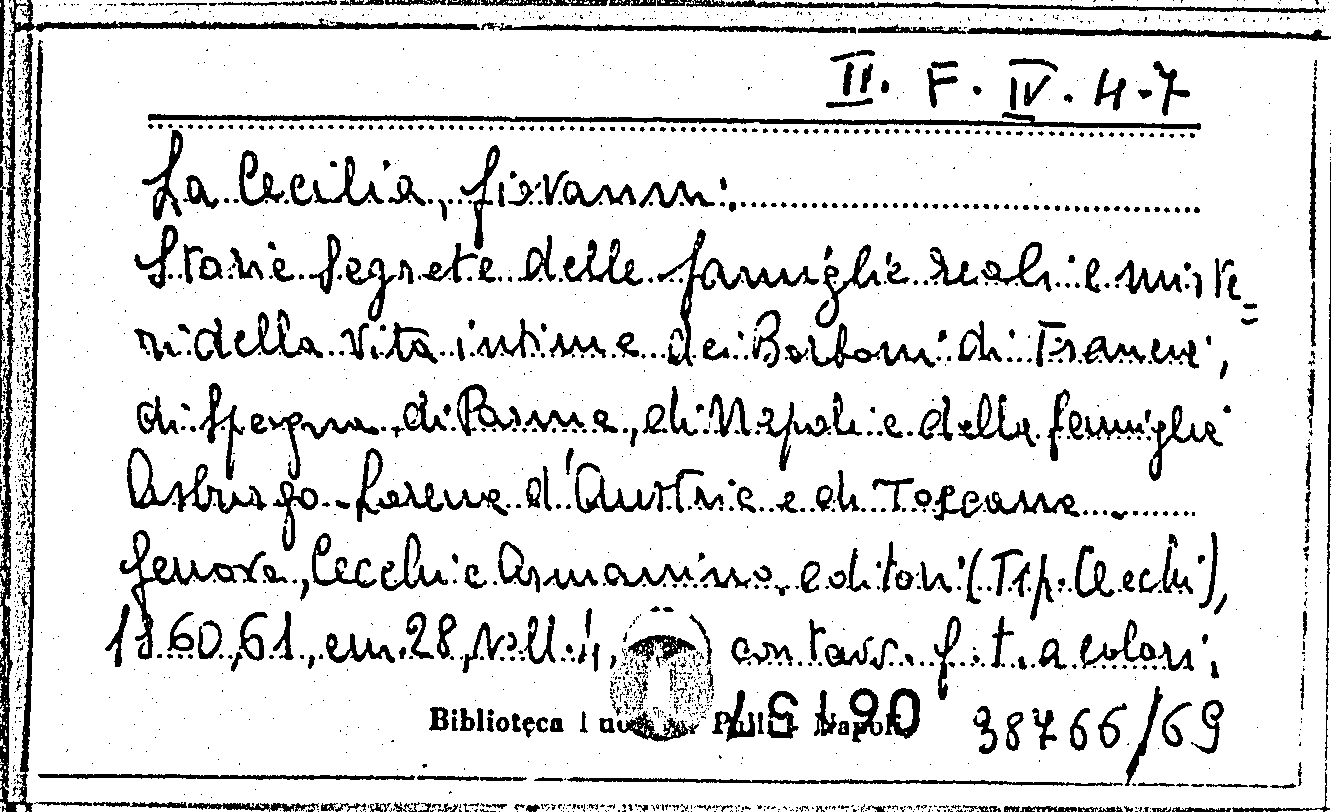 II. F. IV. 4-7
La Cecilia, Giovanni:
Storie Segrete delle famiglie reali e miste=
ri della vita intima dei Borboni di Francia,
di Spagna, di Parma, di Napoli e della famiglia
Asburgo-Lorena d'Austria e di Toscana
Genova, Cecchi e Armanino, editori (Tip. Cecchi),
1860,61, cm. 28, Voll. 4, con tavv. f. t. a colori.
Biblioteca Napoli
38766/69